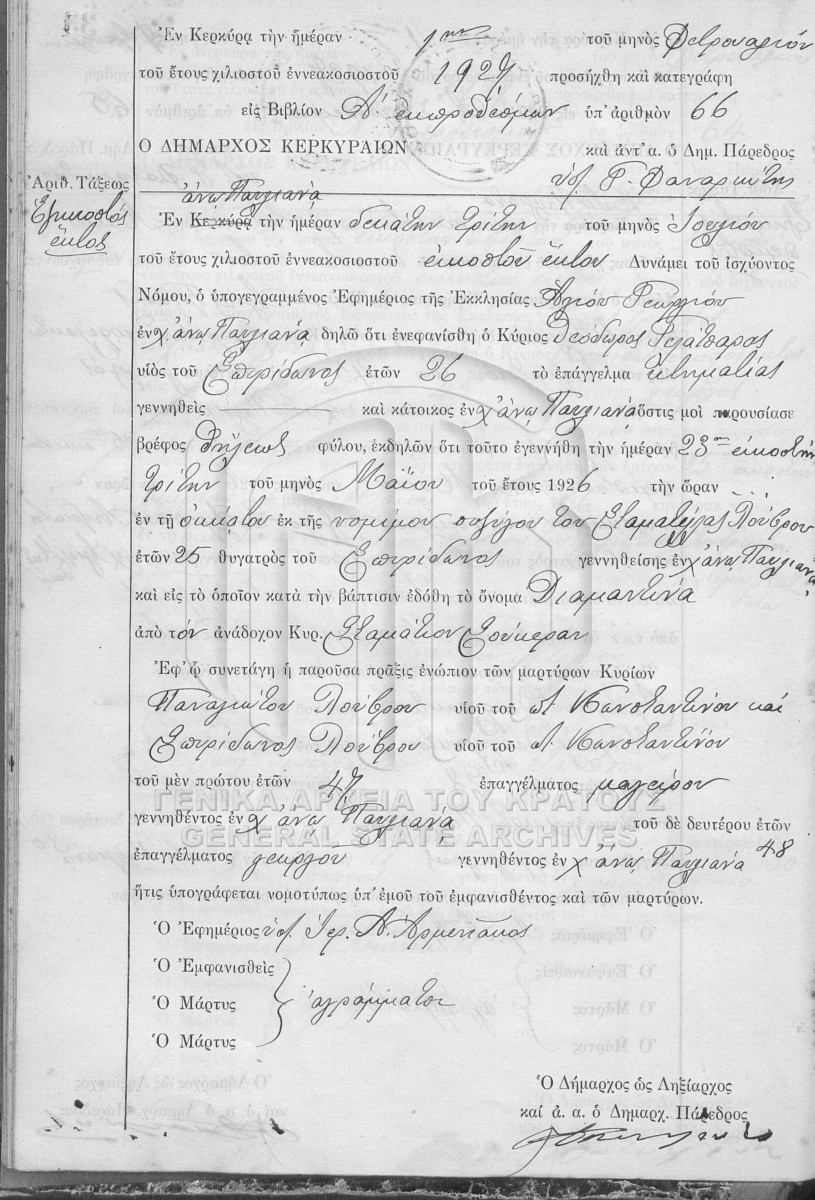 Ἐν Κερκύρᾳ τὴν ἡμέραν 1ην τοῦ μηνὸς Φεβρουαρίου
τοῦ ἔτους χιλιοστοῦ ἐννεακοσιοστοῦ 1927 προσήχθη καὶ κατεγράφη
εἰς Βιβλίον Α΄ ἐκπροθέσμων ὑπ' ἀριθμὸν 66
Ο ΔΗΜΑΡΧΟΣ ΚΕΡΚΥΡΑΙΩΝ καὶ ἀντ' α. ὁ Δημ. Πάρεδρος
Ἀριθ. Τάξεως
Εἰκοστὸς
ἕκτος
ἄνω Παυλιάνα
Ἐν Κερκύρᾳ τὴν ἡμέραν δεκάτην τρίτην τοῦ μηνὸς Ἰουλίου
τοῦ ἔτους χιλιοστοῦ ἐννεακοσιοστοῦ εἰκοστοῦ ἕκτου Δυνάμει τοῦ ἰσχύοντος
Νόμου, ὁ ὑπογεγραμμένος Ἐφημέριος τῆς Ἐκκλησίας Ἁγίου Γεωργίου
ἐν χ ἄνω Παυλιάνα δηλῶ ὅτι ἐνεφανίσθη ὁ Κύριος Θεόδωρος
υἱὸς τοῦ Σπυρίδωνος ἐτῶν 26 τὸ ἐπάγγελμα κτηματίας
γεννηθεὶς καὶ κάτοικος ἐν χ ἄνω Παυλιάνα ὅστις μοὶ παρουσίασε
βρέφος θήλεως φύλου, ἐκδηλῶν ὅτι τοῦτο ἐγεννήθη τὴν ἡμέραν 23ην εἰκοστὴν
τρίτην τοῦ μηνὸς Μαΐου τοῦ ἔτους 1926 τὴν ὥραν ...
ἐν τῇ οἰκίᾳ του ἐκ τῆς νομίμου συζύγου του Σταματέλλας Λούβρου
ἐτῶν 25 θυγατρὸς τοῦ Σπυρίδωνος γεννηθείσης ἐν χ ἄνω Παυλιάνα
καὶ εἰς τὸ ὁποῖον κατὰ τὴν βάπτισιν ἐδόθη τὸ ὄνομα Διαμαντίνα
ἀπὸ τὸν ἀνάδοχον Κυρ. Σταμάτιον
Ἐφ' ᾧ συνετάγη ἡ παροῦσα πρᾶξις ἐνώπιον τῶν μαρτύρων Κυρίων
Παναγιώτου Λούβρου υἱοῦ τοῦ π. Κωνσταντίνου καὶ
Σπυρίδωνος Λούβρου υἱοῦ τοῦ π. Κωνσταντίνου
τοῦ μὲν πρώτου ἐτῶν 47 ἐπαγγέλματος μαγείρου
ΓΕΝΙΚΑ ΑΡΧΕΙΑ ΤΟΥ ΚΡΑΤΟΥΣ
γεννηθέντος ἐν χ ἄνω Παυλιάνα τοῦ δὲ δευτέρου ἐτῶν
GENERAL STATE ARCHIVES
48
ἐπαγγέλματος γεωργοῦ γεννηθέντος ἐν χ ἄνω Παυλιάνα
ἥτις ὑπογράφεται νομοτύπως ὑπ' ἐμοῦ τοῦ ἐμφανισθέντος καὶ τῶν μαρτύρων.
Ὁ Ἐφημέριος ὑπ. Ἱερ. Α.
Ὁ Ἐμφανισθεὶς
Ὁ Μάρτυς ἀγράμματοι
Ὁ Μάρτυς
Ὁ Δήμαρχος ὡς Ληξίαρχος
καί ἀ. α. ὁ Δημαρχ. Πάρεδρος